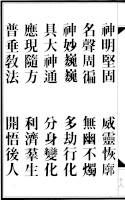 神明堅固　威靈恢廓
名聲周徧　無幽不燭
神妙巍巍　多劫行化
具大神通　分身變化
應現隨方　利濟羣生
普垂敎法　開悟後人